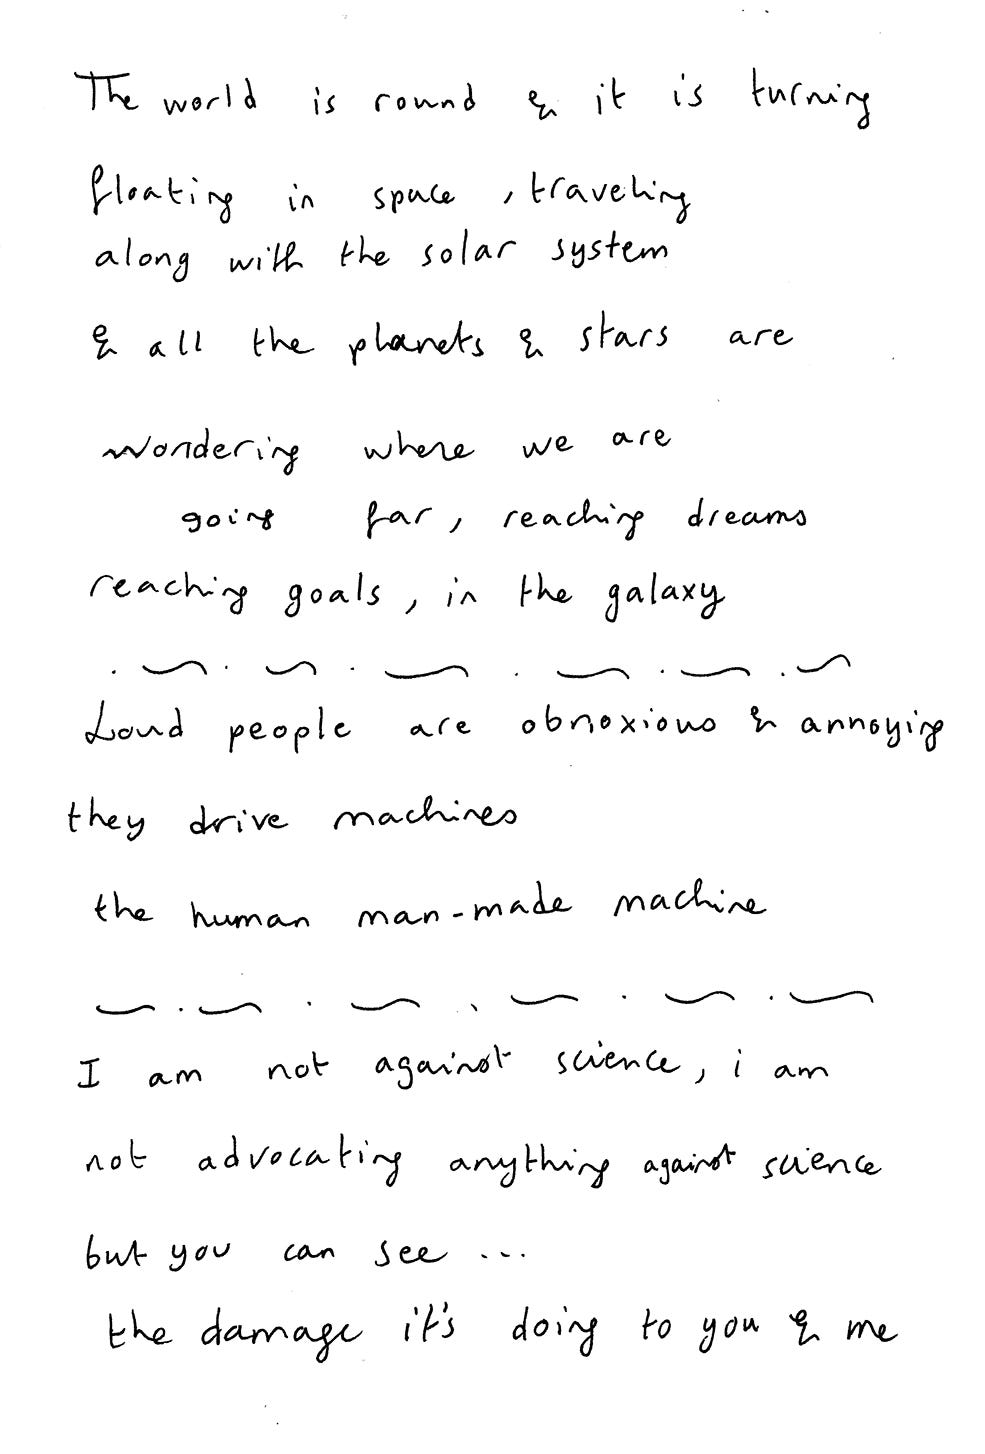 The world is round & it is turning
floating in space, traveling
along with the solar system
& all the planets & stars are
wondering where we are
going far, reaching dreams
reaching goals, in the galaxy
Loud people are obnoxious & annoying
they drive machines
the human man-made machine
I am not against science, i am
not advocating anything against science
but you can see ...
the damage it's doing to you & me